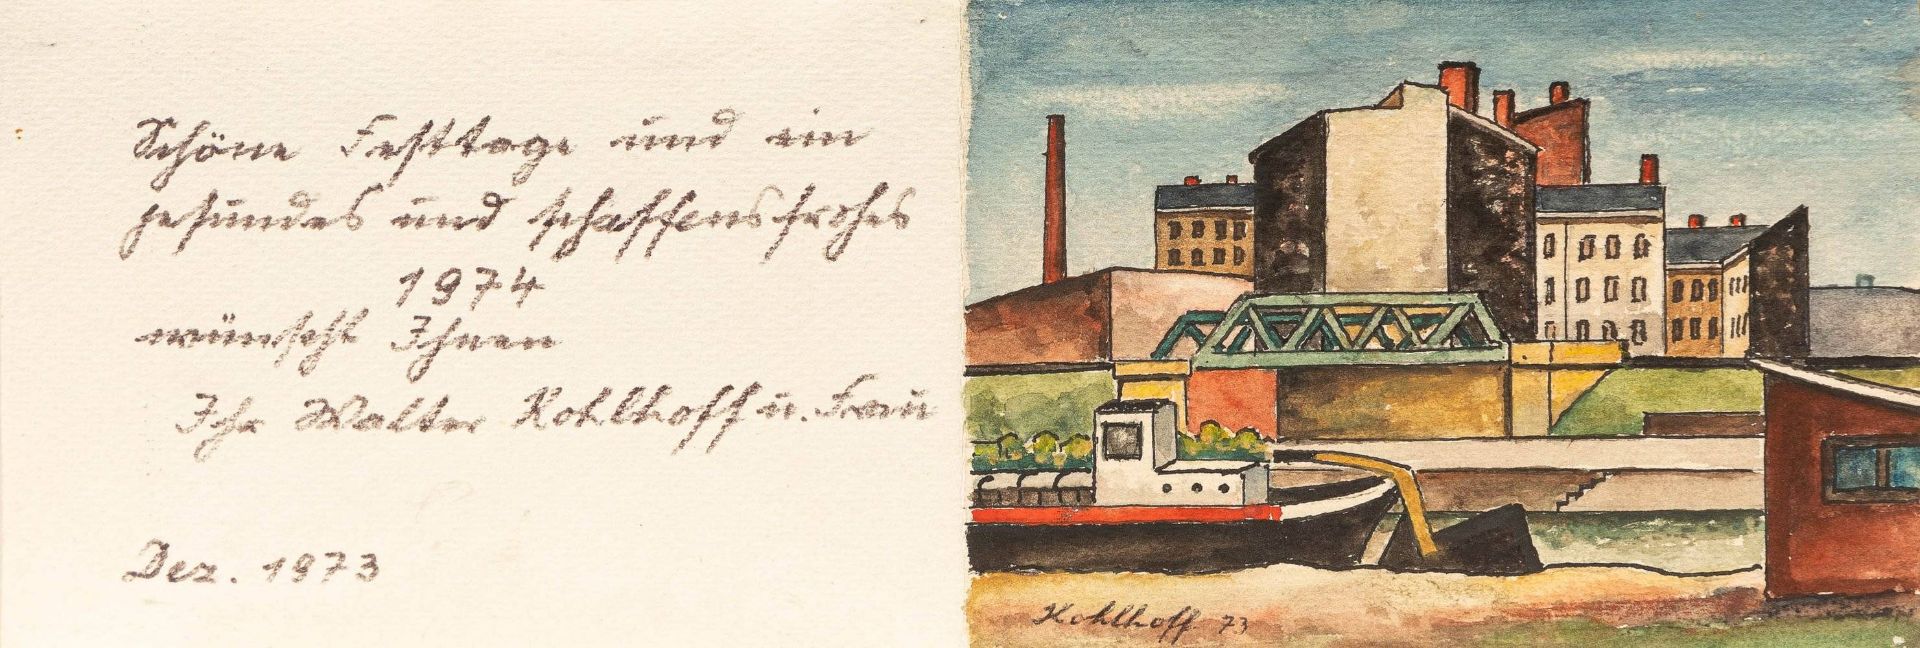 Schöne Festtage und ein
gesundes und schaffensfrohes
1974
wünscht Ihnen
Ihr Walter Kohlhoff u. Frau
Dez. 1973
Kohlhoff 73